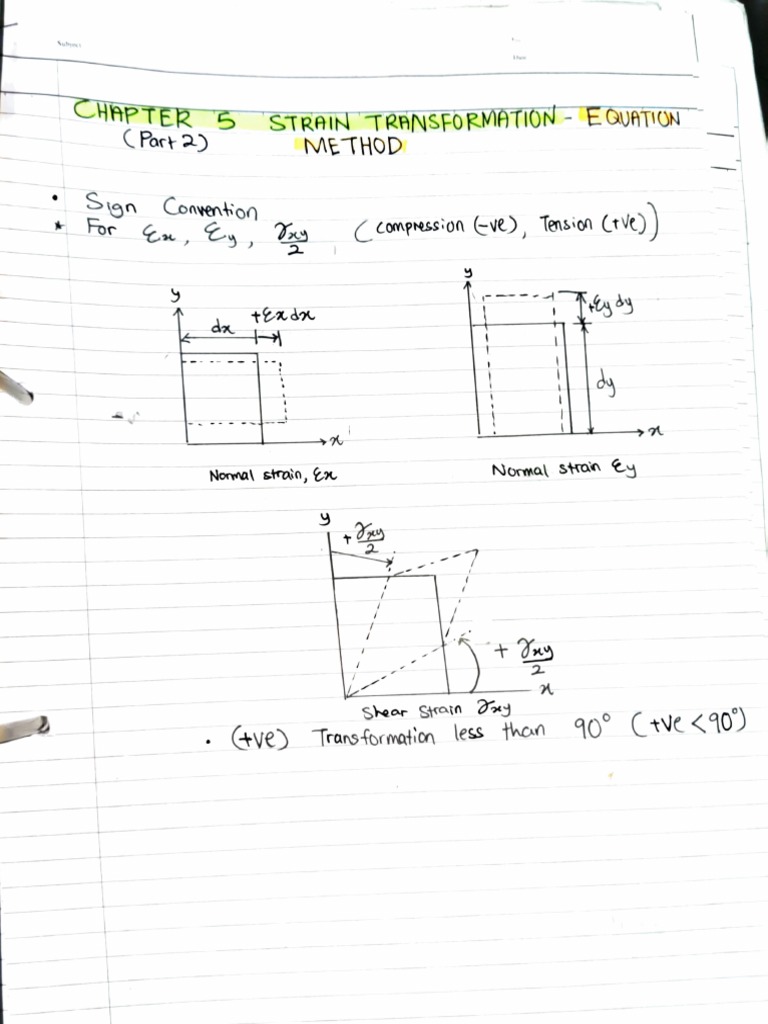 Subject
Date
CHAPTER 5 STRAIN TRANSFORMATION - EQUATION
(Part 2) METHOD
• Sign Convention
* For εx, εy, γxy/2 (compression (-ve), Tension (+ve))
y
dx
+εxdx
x
Normal strain, εx
y
+εy dy
dy
x
Normal strain εy
y
+ γxy/2
+ γxy/2
x
Shear Strain γxy
• (+ve) Transformation less than 90° (+ve < 90°)